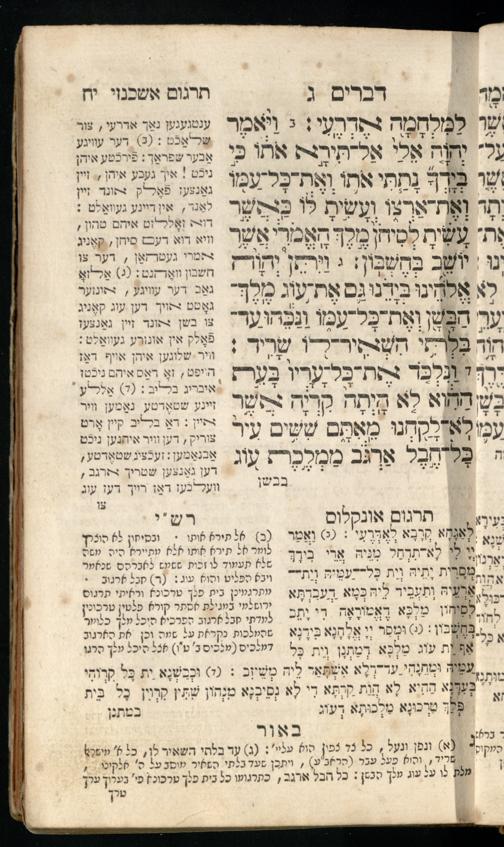 דברים ג
תרגום אשכנזי יח
למלחמה אדרעי : ב ויאמר
יהוה אלי אל־תירא אתו כי
בידך נתתי אתו ואת־כל־עמו
ואת־ארצו ועשית לו כאשר
עשית לסיחן מלך האמרי אשר
יושב בחשבון : ג ויתן יהוה
אלהינו בידנו גם את־עוג מלך־
הבשן ואת־כל־עמו ונכהו עד־
בלתי השאיר־לו שריד :
ד ונלכד את־כל־עריו בעת
ההוא לא היתה קריה אשר
לא־לקחנו מאתם ששים עיר
כל־חבל ארגב ממלכת עוג
בבשן
ענטגעגען נאך אדרעי , צור
שלאכט : (ב) דער עוויגע
אבער שפראך : פירכטע איהן
ניכט ! איך געבע איהן , זיין
גאנצעז פאלק אונד זיין
לאנד , אין דיינע געוואלט :
דוא זאללזט איהם טהון ,
וויא דוא דעם סיחן , קאניג
אמרי געטהאן , דער צו
חשבון וואהנט : (ג) אלזא
גאב דער עוויגע , אונזער
גאטט אויך דען עוג קאניג
צו בשן אונד זיין גאנצעז
פאלק אין אונזרע געוואלט :
וויר שלוגען איהן אויף דאז
הויפט , זא דאס איהם ניכטז
איבריג בליב : (ד) אללע
זיינע שטאדטע נאמען וויר
איין : דא בליב קיין ארט
צוריק , דען וויר איהנען ניכט
אבנאהמען : זעכציג שטאדטע ,
דען גאנצען שטריך ארגב ,
וועלכעז דאז רייך דעז עוג
צו
תרגום אונקלוס
לאגחא קרבא לאדרעי : (ב) ואמר
יי לי לא־תדחל מניה ארי בידך
מסרית יתיה וית כל־עמיה וית־
ארעיה ותעביד ליה כמא דעבדתא
לסיחון מלכא דאמוראה די יתב
בחשבון : (ג) ומסר יי אלהנא בידנא
אף ית עוג מלכא דמתנן וית כל
עמיה ומחנהי עד־דלא אשתאר ליה משיזב : (ד) וכבשנא ית כל קרוהי
בעדנא ההיא לא הות קרתא די לא נסיבנא מנהון שתין קרוין כל בית
פלך טרכונא מלכותא דעוג
במתנן
רש״י
(ב) אל תירא אותו . ובסיחון לא הוצרך
לומר אל תירא אותו אלא מתיירא היה משה
שלא תעמוד לו זכות ששמש לאברהם שנאמר
ויבא הפליט והוא עוג : (ד) חבל ארגוב .
מתרגמינן בית פלך טרכונא וראיתי תרגום
ירושלמי במגילת אסתר קורא פלטין טרכונין
למדתי חבל ארגוב הפרכיא היכל מלך כלומר
שהמלכות נקראת על שמה וכן את הארגוב
דמלכים (מלכים ב׳ ט״ו) אצל היכל מלך הרגו
באור
שריד , והוא פעל עבר (הראב״ע) , ויתכן שעד בלתי השאיר מוסב על ה׳ אלקינו ,
טרך